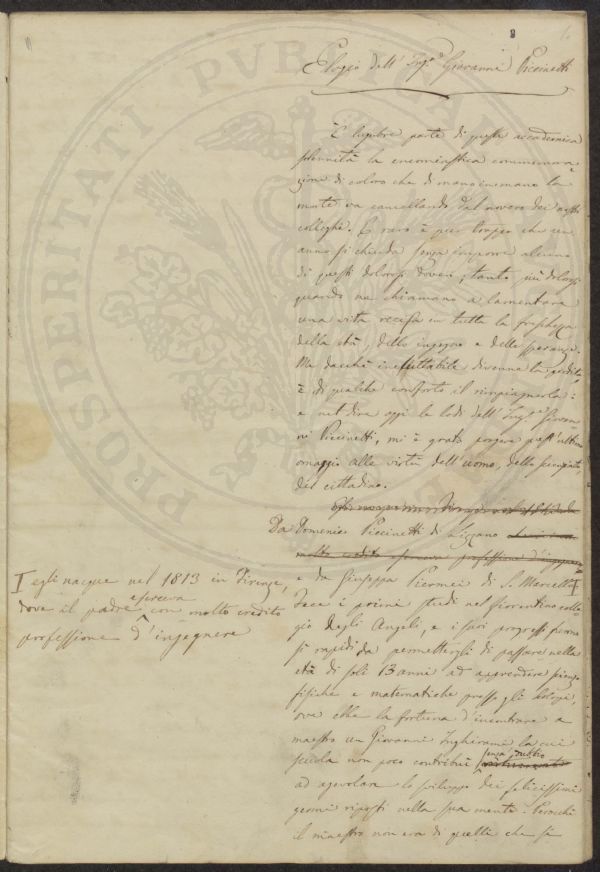 Elogio dell' Ing.e Giovanni Piccinetti
È lugubre parte di queste accademica
solennità la encomiastica commemora-
zione di coloro che di mano in mano la
morte va cancellando dal novero dei nostri
colleghi. E raro è pur troppo che un
anno si chiuda senza imporre alcuno
di questi dolorosi doveri; tanto più dolorosi
quando ne chiamano a lamentare
una vita recisa in tutta la freschezza
della età, dello ingegno e delle speranze.
Ma dacchè ineluttabile divenne la perdita
è di qualche conforto il rimpiangerla:
e nel dire oggi le lodi dell' Ing.e Giovan-
ni Piccinetti, mi è grato porgere quest'ultimo
omaggio alle virtù dell'uomo, dello scienziato,
del cittadino.
Da Domenico Piccinetti di Lizzano
molto credito professione d'ingegnere
e da Giuseppa Piermei di S. Marcello
I egli nacque nel 1813 in Firenze,
dove il padre eserceva con molto credito
professione d'ingegnere
Fece i primi studi nel fiorentino colle-
gio degli Angeli, e i suoi progressi furono
sì rapidi da permettergli di passare nella
età di soli 13 anni ad apprendere scienze
fisiche e matematiche presso gli Scolopi,
ove ebbe la fortuna d'incontrare a
maestro un Giovanni Inghirami la cui
scuola non poco contribuì senza dubbio
ad agevolare lo sviluppo dei felicissimi
germi riposti nella sua mente. Perocchè
il maestro non era di quelli che si
PROSPERITATI PUBLICAE